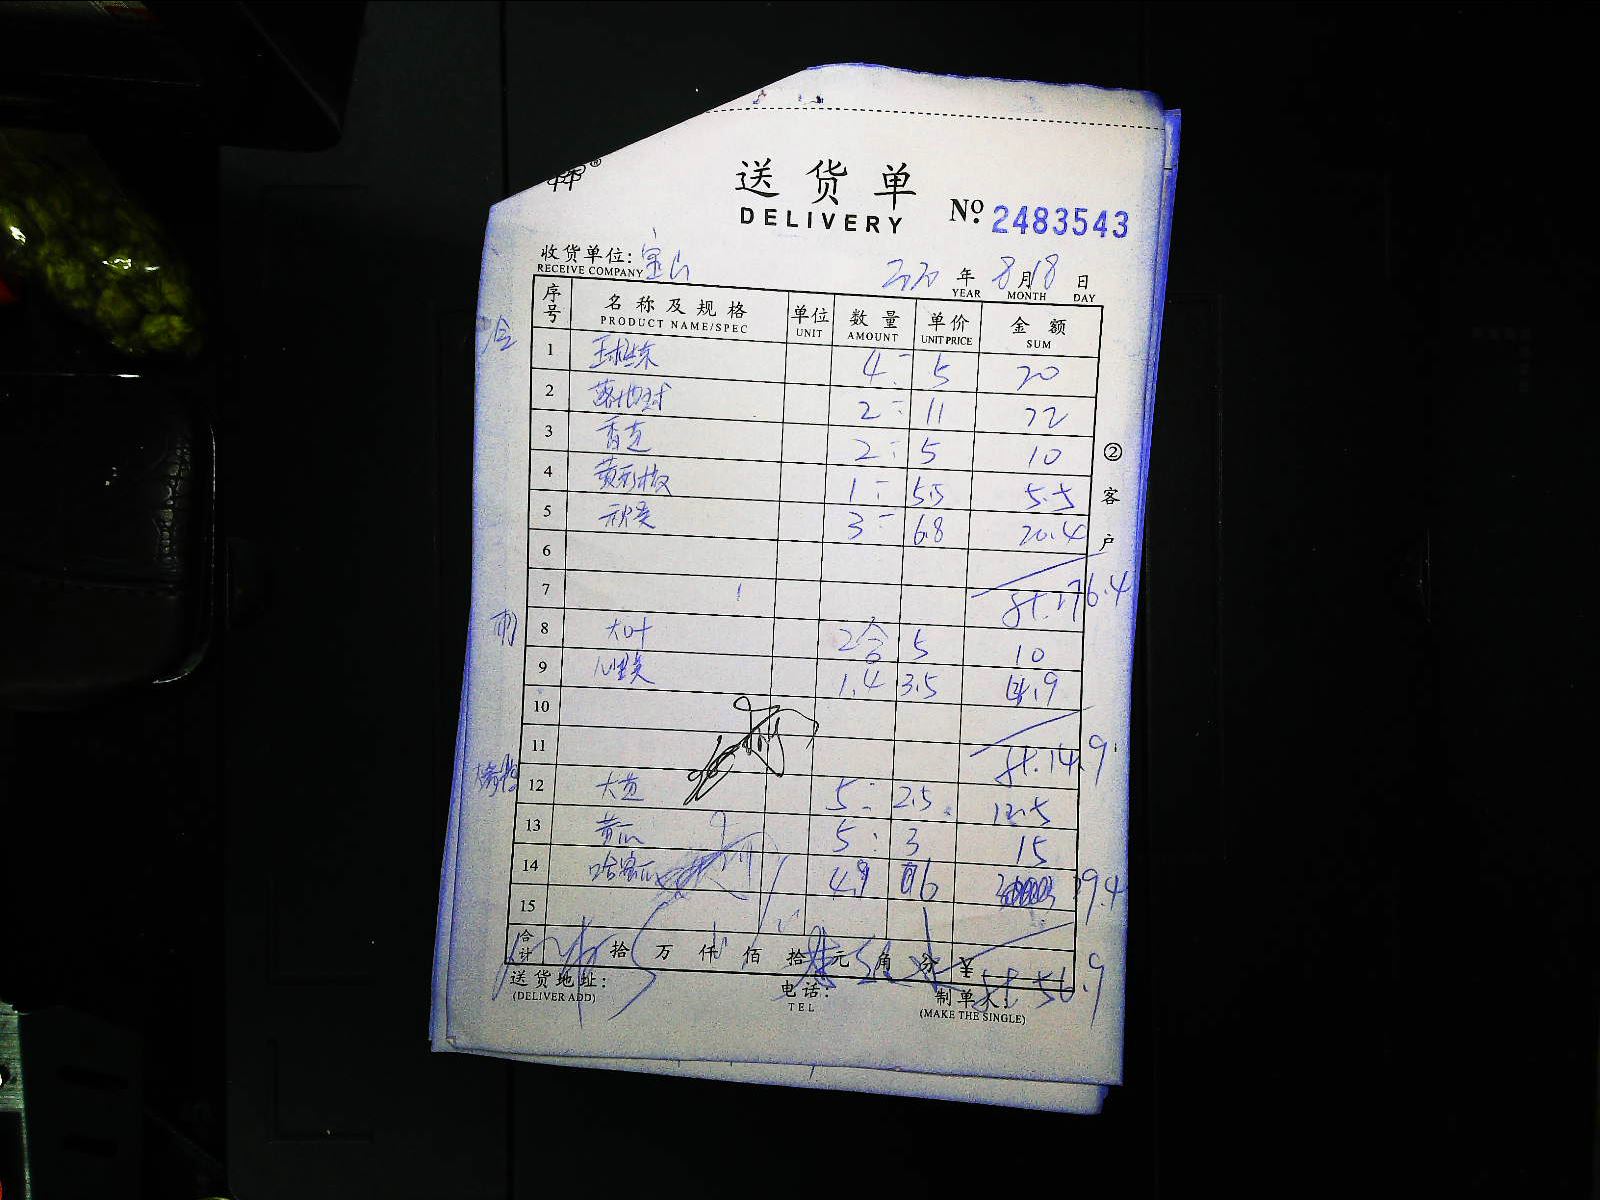 送货单
DELIVERY
No. 2483543
收货单位: 宝山
RECEIVE COMPANY
2020 年 8 月 18 日
YEAR MONTH DAY
序号 名称及规格 单位 数量 单价 金额
PRODUCT NAME/SPEC UNIT AMOUNT UNIT PRICE SUM
1 4 5 20
2 落地球 2 11 22
3 香芝 2 5 10
4 1 5.5 5.5
5 秋葵 3 6.8 20.4
6
7 76.4
8 大叶 2合 5 10
9 1.4 3.5 4.9
10
11 14.9
12 5 2.5 12.5
13 黄瓜 5 3 15
14 哈密瓜 4.9 6 29.4
15
合计 拾 万 仟 佰 拾 元 角 分 ¥ 56.9
② 客户
送货地址:
(DELIVER ADD)
电话:
TEL
制单人:
(MAKE THE SINGLE)